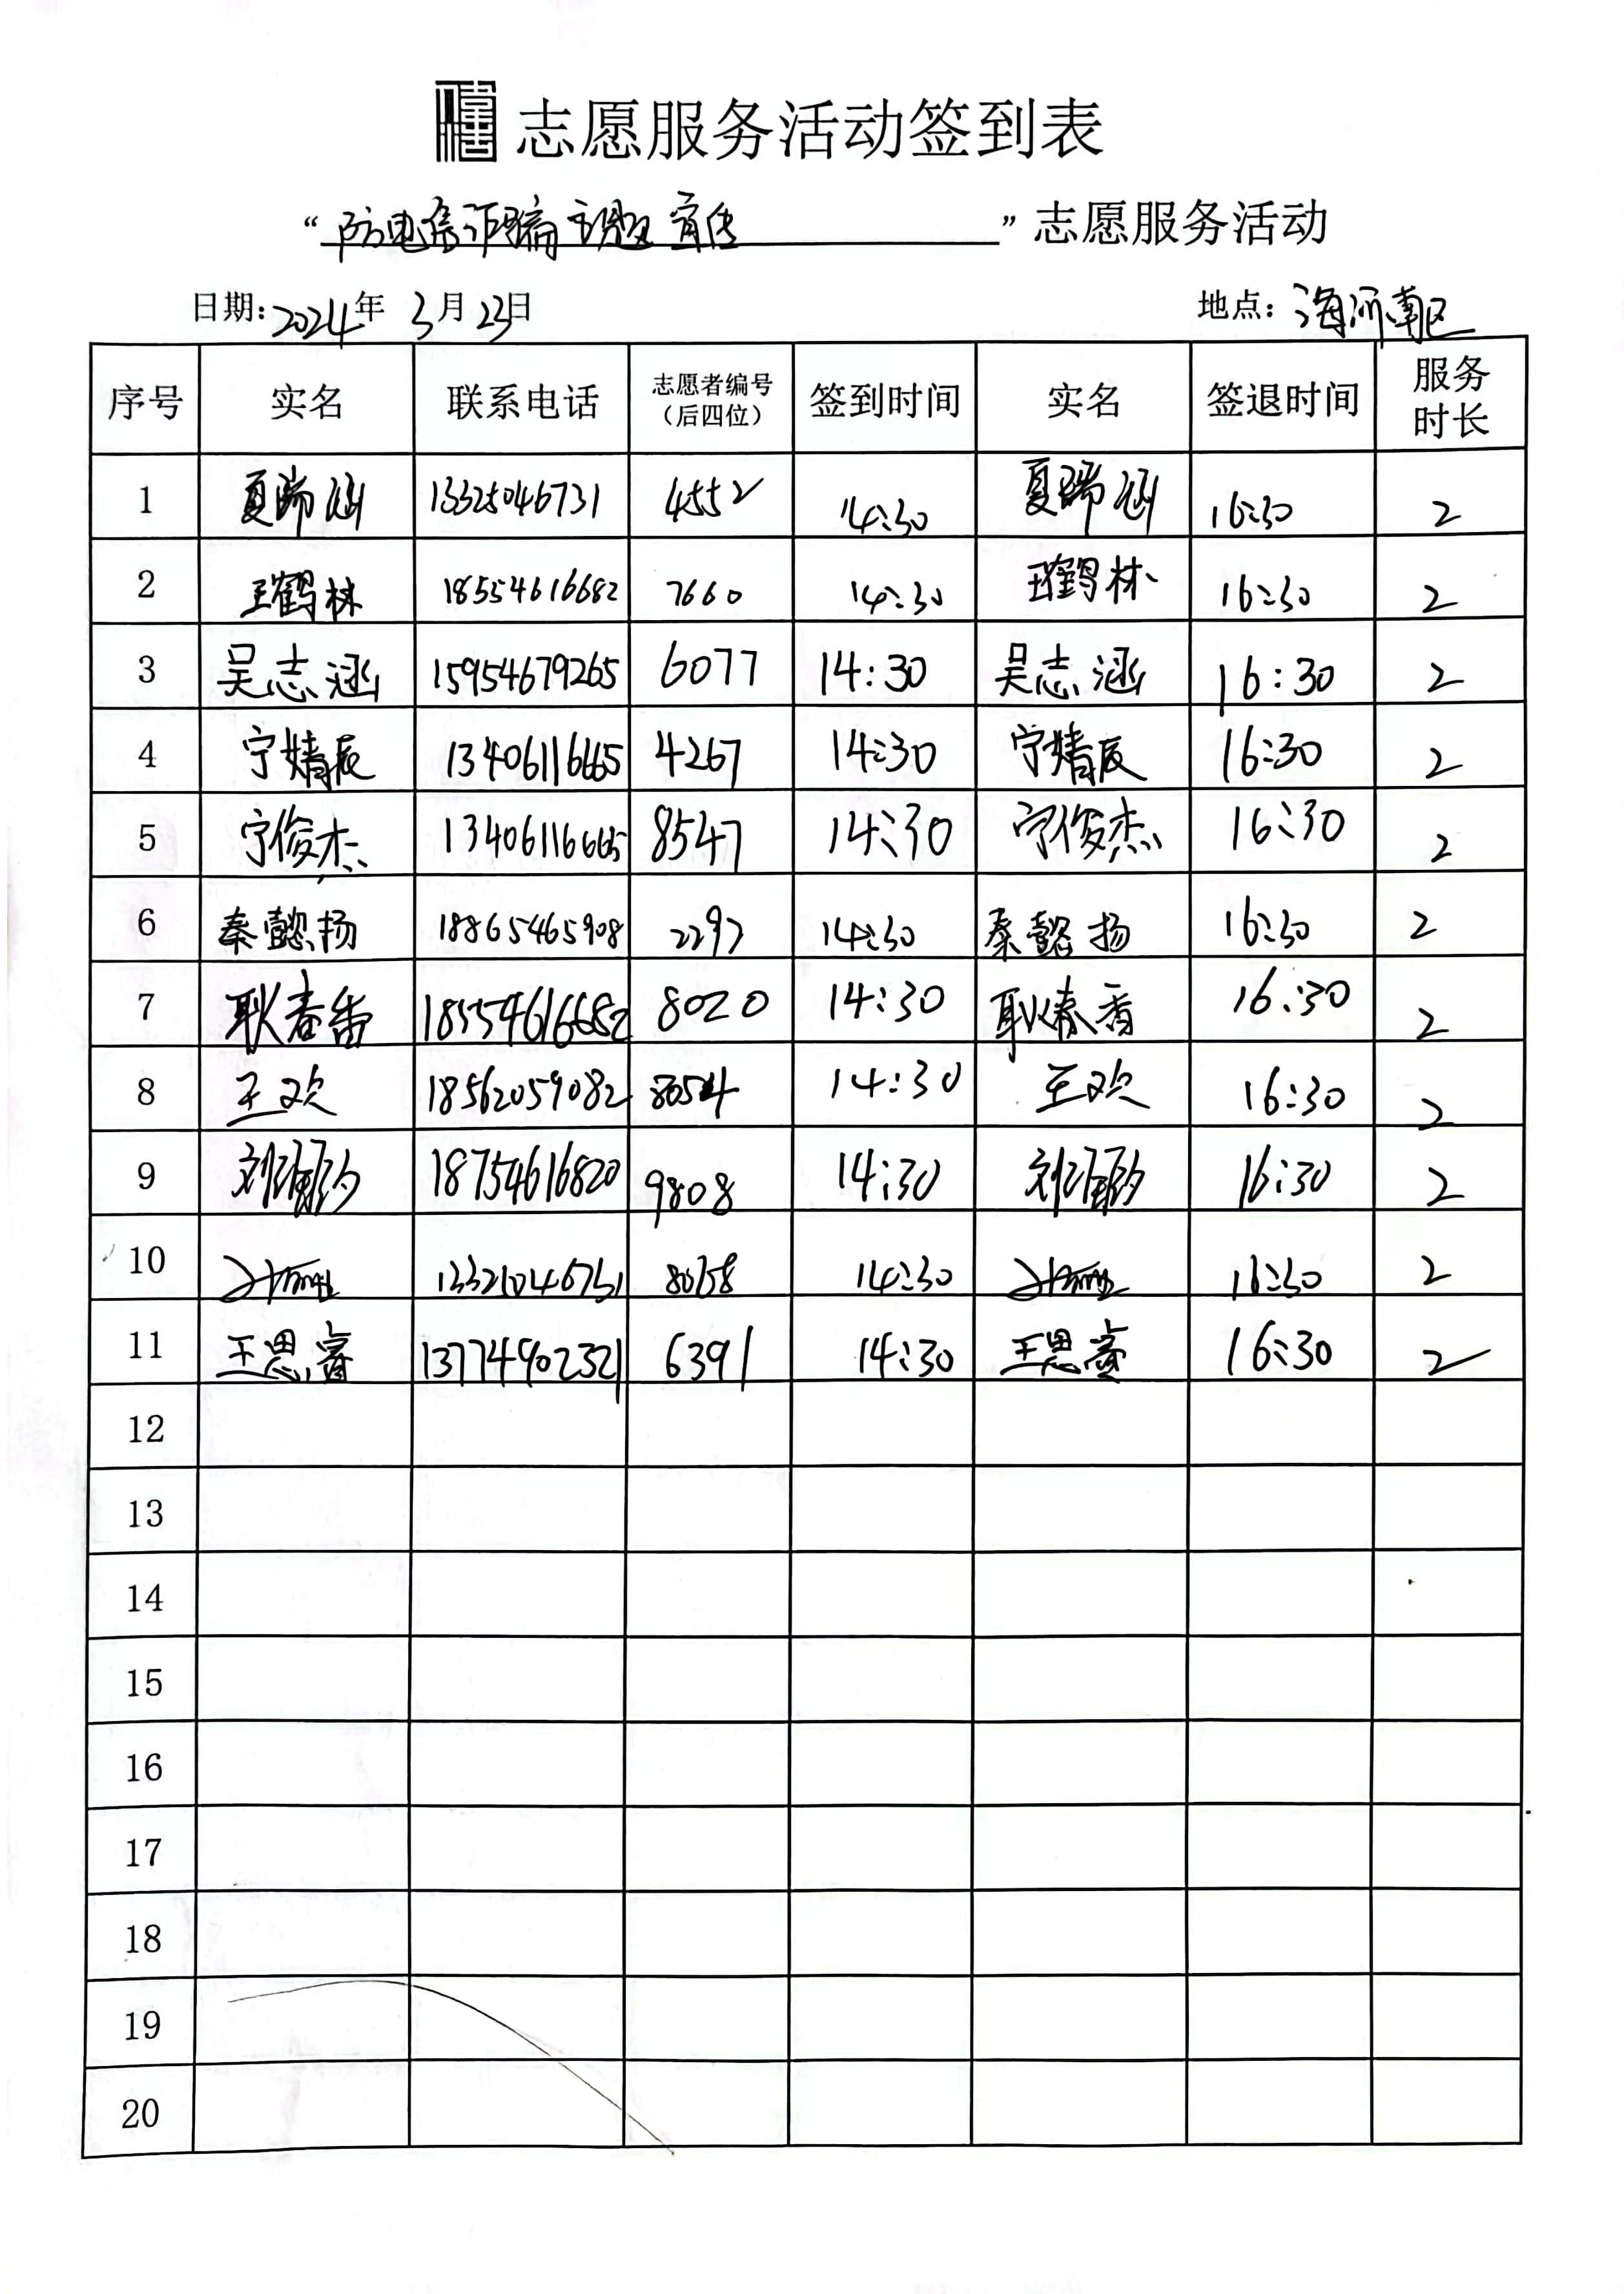 志愿服务活动签到表
“防电信诈骗主题宣传”志愿服务活动
日期:2024年 3月23日 地点:海河南区
序号 实名 联系电话 志愿者编号（后四位） 签到时间 实名 签退时间 服务时长
1 夏瑞涵 13325046731 4552 14:30 夏瑞涵 16:30 2
2 王鹤林 18554616682 7660 14:30 王鹤林 16:30 2
3 吴志涵 15954679265 6077 14:30 吴志涵 16:30 2
4 宁婧辰 13406116665 4267 14:30 宁婧辰 16:30 2
5 宁俊杰 13406116665 8547 14:30 宁俊杰 16:30 2
6 秦懿扬 18865465908 2297 14:30 秦懿扬 16:30 2
7 耿春香 18554616682 8020 14:30 耿春香 16:30 2
8 王欢 18562059082 14:30 王欢 16:30 2
9 18754616820 9808 14:30 16:30 2
10 14:30 16:30 2
11 王思睿 13774902321 6391 14:30 王思睿 16:30 2
12
13
14
15
16
17
18
19
20